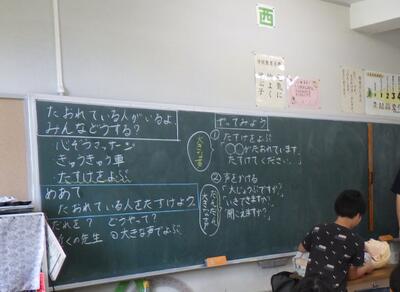 西
たおれている人がいるよ
みんなどうする？
心ぞうマッサージ
きゅうきゅう車
たすけをよぶ
めあて
たおれている人をたすけよう
だれを？ どうやって？
近くの先生 大きな声でよぶ
やってみよう
大きな声
① たすけをよぶ
「〇〇がたおれています。
たすけてください。」
② 声をかける
「大じょうぶですか？」
「いきてますか？」
「聞こえますか？」